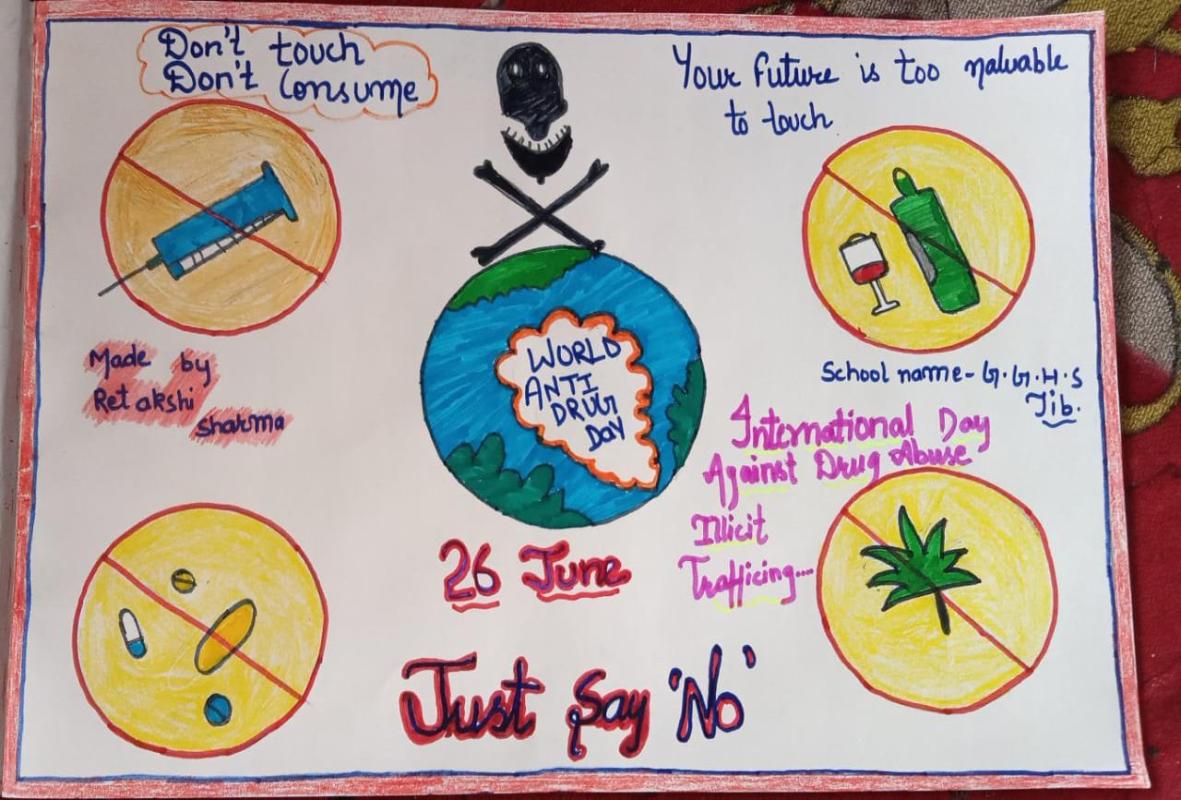 Don't touch
Don't Consume
Your future is too naluable
to touch
WORLD
ANTI
DRUG
DAY
Made by
Retakshi
sharma
School name - G.G.H.S
Jib.
International Day
Against Drug Abuse
Illicit
Trafficing...
26 June
Just Say 'No'